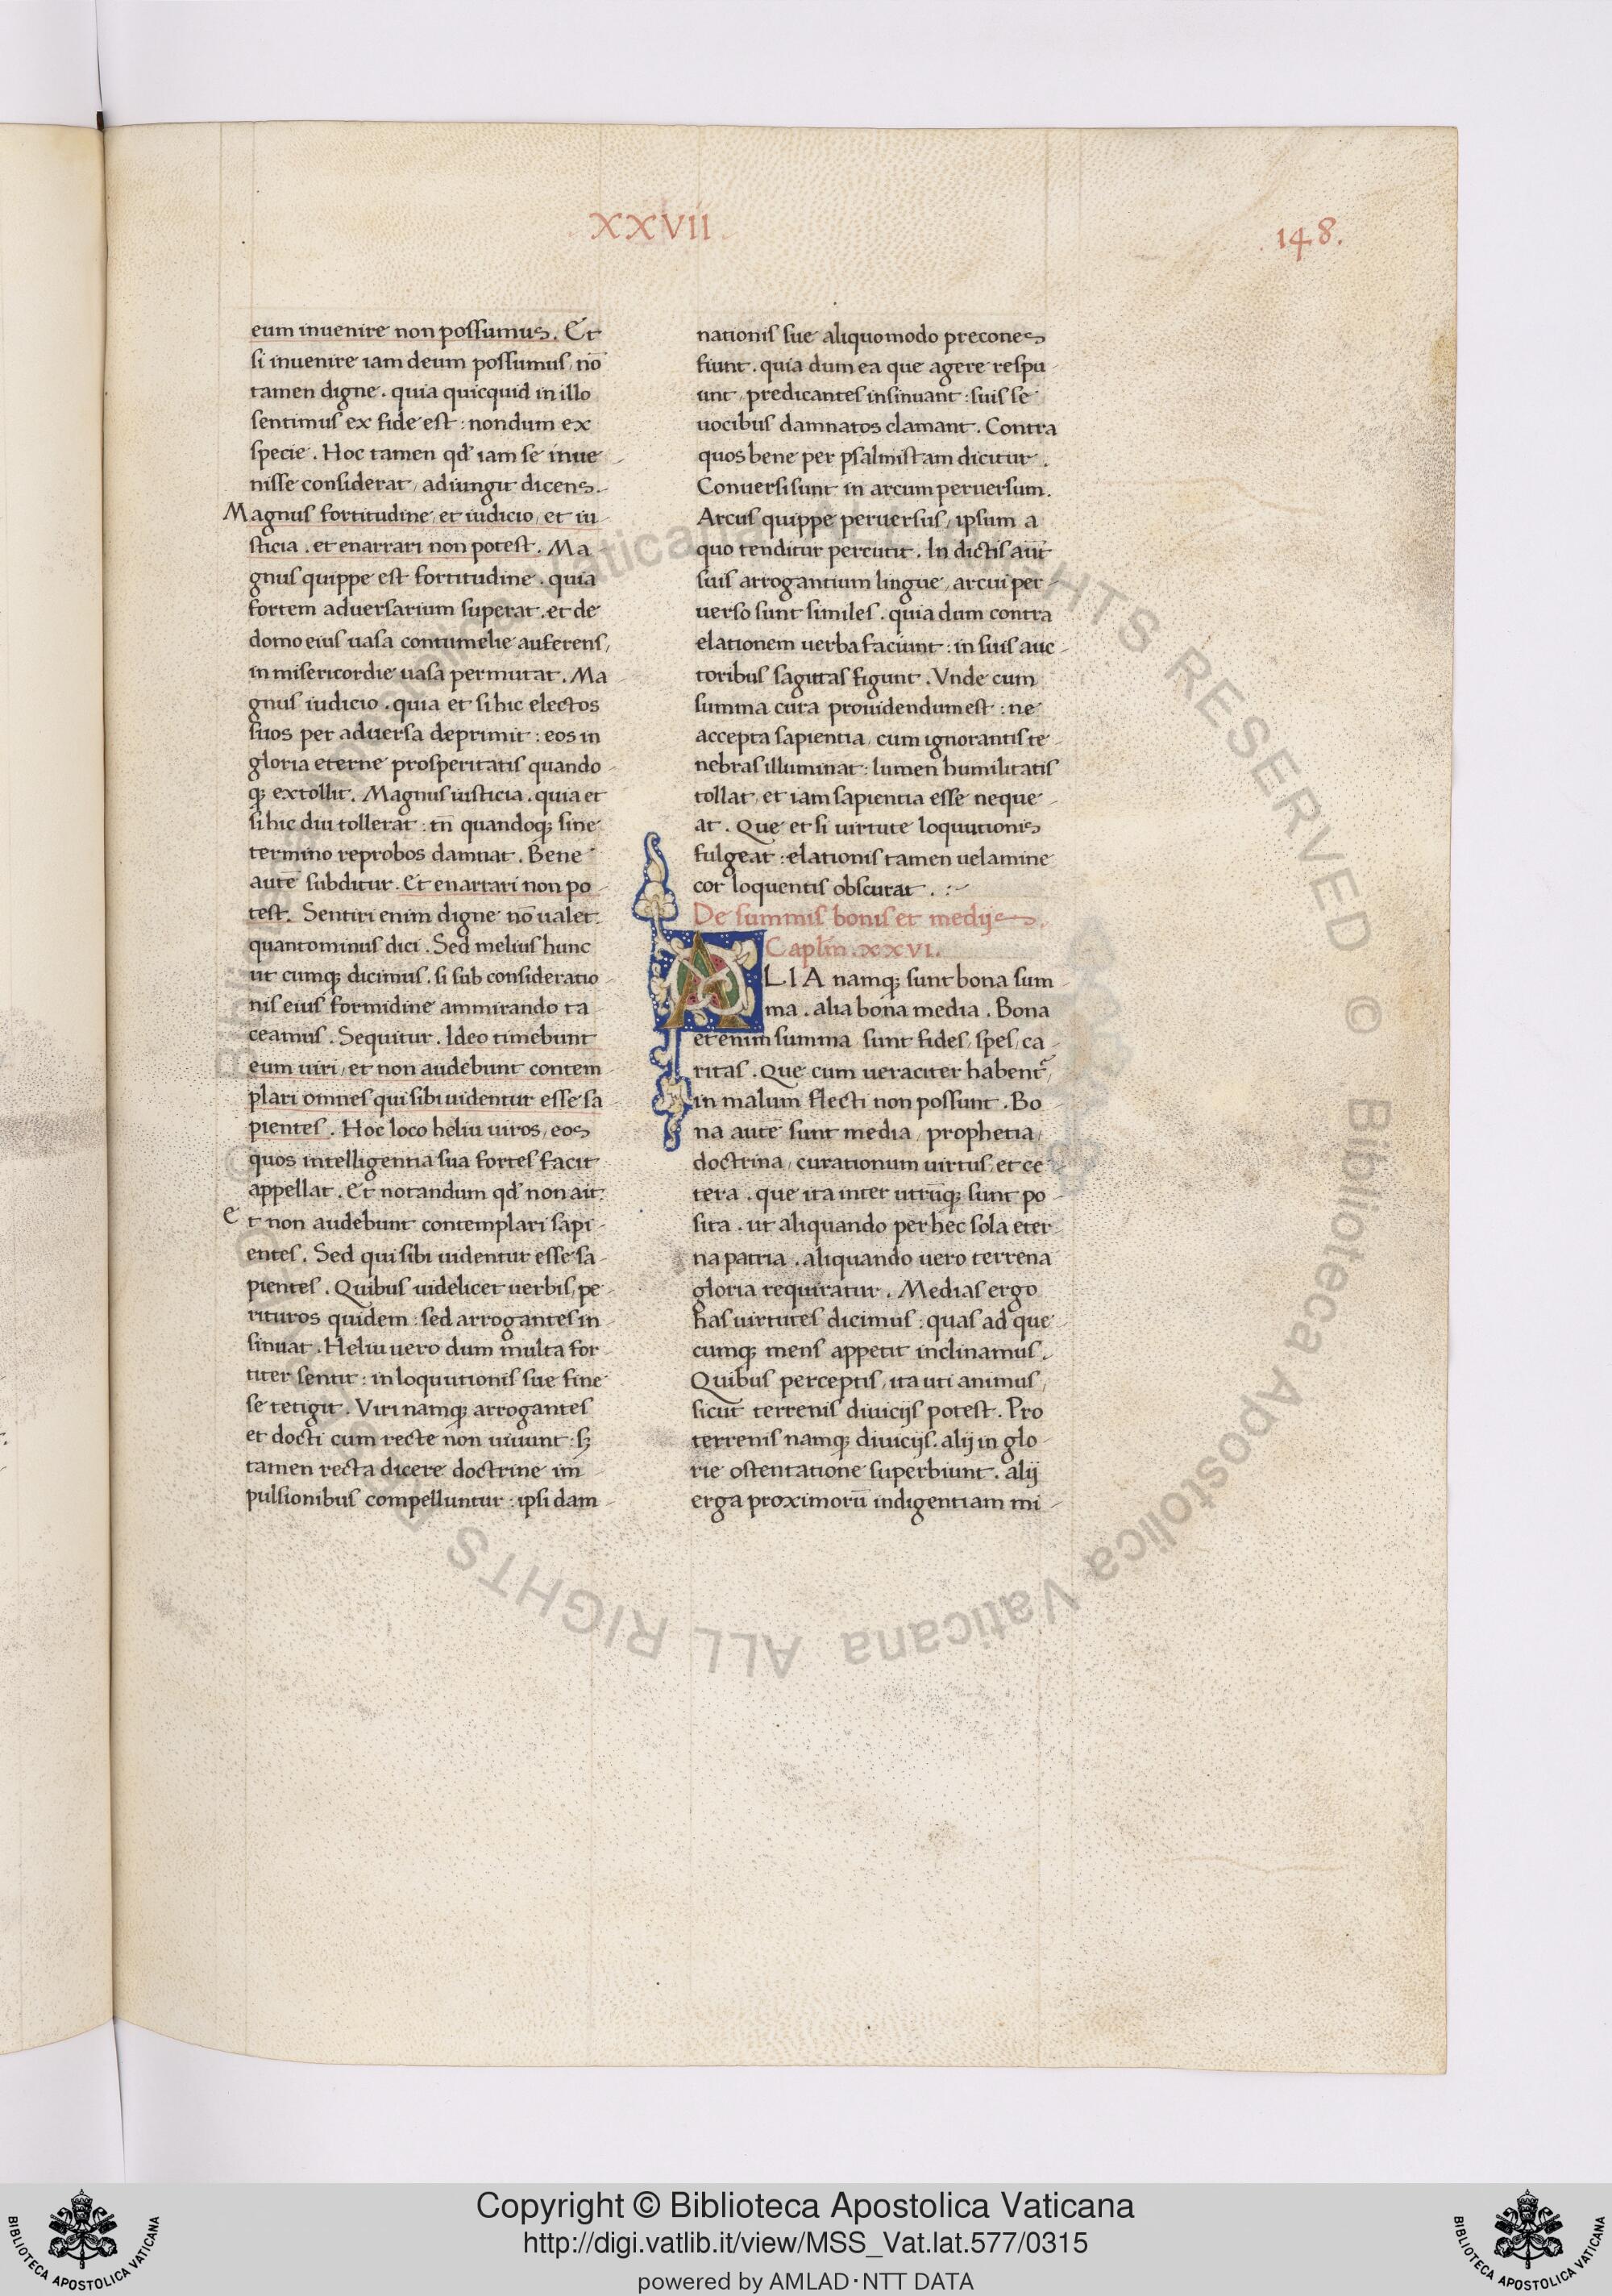 XXVII
148.
eum inuenire non possumus. Et
si inuenire iam deum possumus, nō
tamen digne. quia quicquid in illo
sentimus ex fide est: nondum ex
specie. Hoc tamen qđ iam se inue
nisse considerat, adiungit dicens.
Magnus fortitudine, et iudicio, et iu
sticia. et enarrari non potest. Ma
gnus quippe est fortitudine. quia
fortem aduersarium superat. et de
domo eius uasa contumelie auferens,
in misericordie uasa permutat. Ma
gnus iudicio. quia et si hic electos
suos per aduersa deprimit: eos in
gloria eterne prosperitatis quando
q; extollit. Magnus iusticia. quia et
si hic diu tollerat: tn̄ quandoq; sine
termino reprobos damnat. Bene
autē subditur. Et enarrari non po
test. Sentiri enim digne nō ualet:
quantominus dici. Sed melius hunc
ut cumq; dicimus. si sub consideratio
nis eius formidine ammirando ta
ceamus. Sequitur. Ideo timebunt
eum uiri, et non audebunt contem
plari omnes qui sibi uidentur esse sa
pientes. Hoc loco heliu uiros, eos
quos intelligentia sua fortes facit
appellat. Et notandum qđ non ait:
Et non audebunt contemplari sapi
entes. Sed qui sibi uidentur esse sa
pientes. Quibus uidelicet uerbis, pe
rituros quidem: sed arrogantes in
sinuat. Heliu uero dum multa for
titer sentit: in loquutionis sue fine
se tetigit. Viri namq; arrogantes
et docti cum recte non uiuunt: sꝫ
tamen recta dicere doctrine im
pulsionibus compelluntur: ipsi dam
nationis sue aliquomodo precones
fiunt. quia dum ea que agere respu
unt, predicantes insinuant: suis se
uocibus damnatos clamant. Contra
quos bene per psalmistam dicitur.
Conuersi sunt in arcum peruersum.
Arcus quippe peruersus, ipsum a
quo tenditur percutit. In dictis aūt
suis arrogantium lingue, arcui per
uerso sunt similes. quia dum contra
elationem uerba faciunt: in suis auc
toribus sagittas figunt. Vnde cum
summa cura prouidendum est: ne
accepta sapientia, cum ignorantis te
nebras illuminat: lumen humilitatis
tollat, et iam sapientia esse neque
at. Que et si uirtute loquutionis
fulgeat: elationis tamen uelamine
cor loquentis obscurat.:~
De summis bonis et medijs.
Caplm̄. XXVI.
ALIA namq; sunt bona sum
ma. alia bona media. Bona
etenim summa sunt fides, spes, ca
ritas. Que cum ueraciter habent᷑,
in malum flecti non possunt. Bo
na autē sunt media, prophetia,
doctrina, curationum uirtus, et ce
tera. que ita inter utrūq; sunt po
sita. ut aliquando per hec sola eter
na patria. aliquando uero terrena
gloria requiratur. Medias ergo
has uirtutes dicimus: quas ad que
cumq; mens appetit inclinamus.
Quibus perceptis, ita uti animus,
sicut terrenis diuicijs potest. Pro
terrenis namq; diuicijs. alij in glo
rie ostentatione superbiunt. alij
erga proximorū indigentiam mi
© Biblioteca Apostolica Vaticana ALL RIGHTS RESERVED
Copyright © Biblioteca Apostolica Vaticana
http://digi.vatlib.it/view/MSS_Vat.lat.577/0315
powered by AMLAD·NTT DATA
BIBLIOTECA APOSTOLICA VATICANA
BIBLIOTECA APOSTOLICA VATICANA